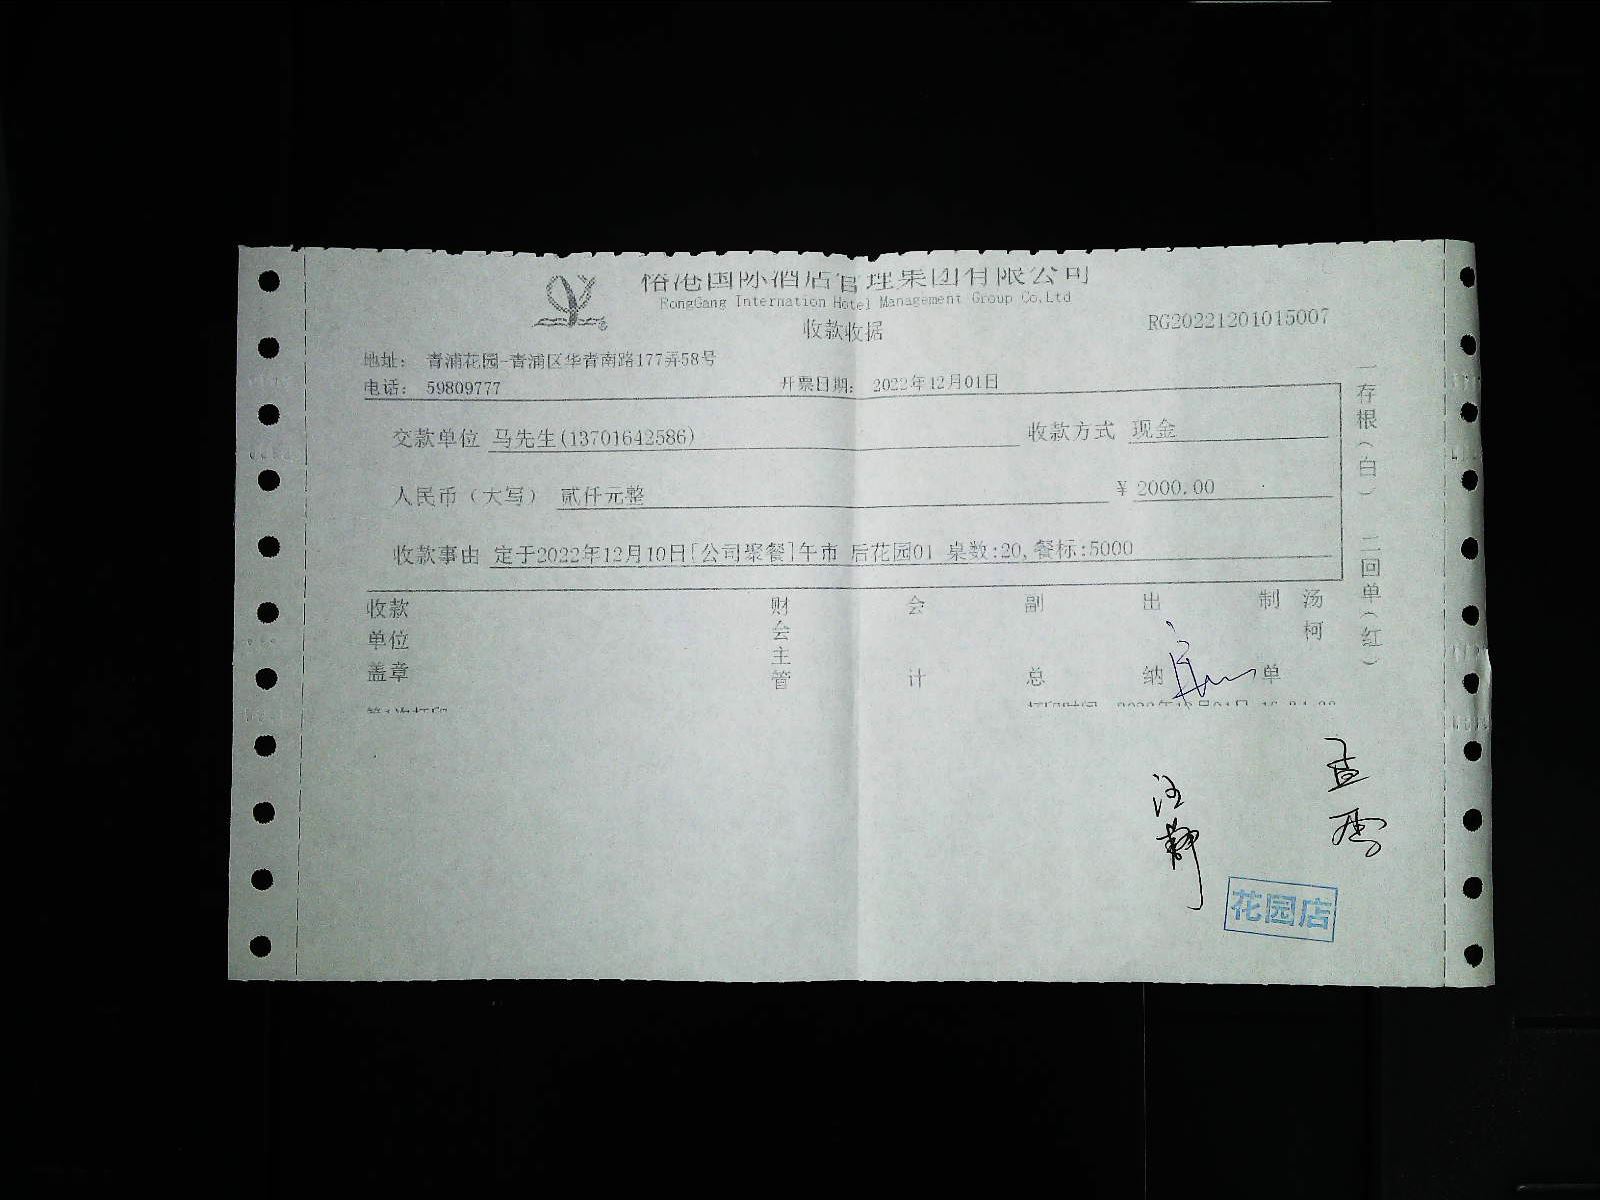 裕港国际酒店管理集团有限公司
RongGang Internation Hotel Management Group Co.Ltd
收款收据
RG20221201015007
地址： 青浦花园-青浦区华青南路177弄58号
电话： 59809777 开票日期： 2022年12月01日
交款单位 马先生(13701642586) 收款方式 现金
人民币（大写） 贰仟元整 ¥ 2000.00
收款事由 定于2022年12月10日[公司聚餐]午市 后花园01 桌数:20,餐标:5000
收款单位盖章 财会主管 会计 副总 出纳 制单 汤柯
一存根（白） 二回单（红）
汪静
孟雪
花园店